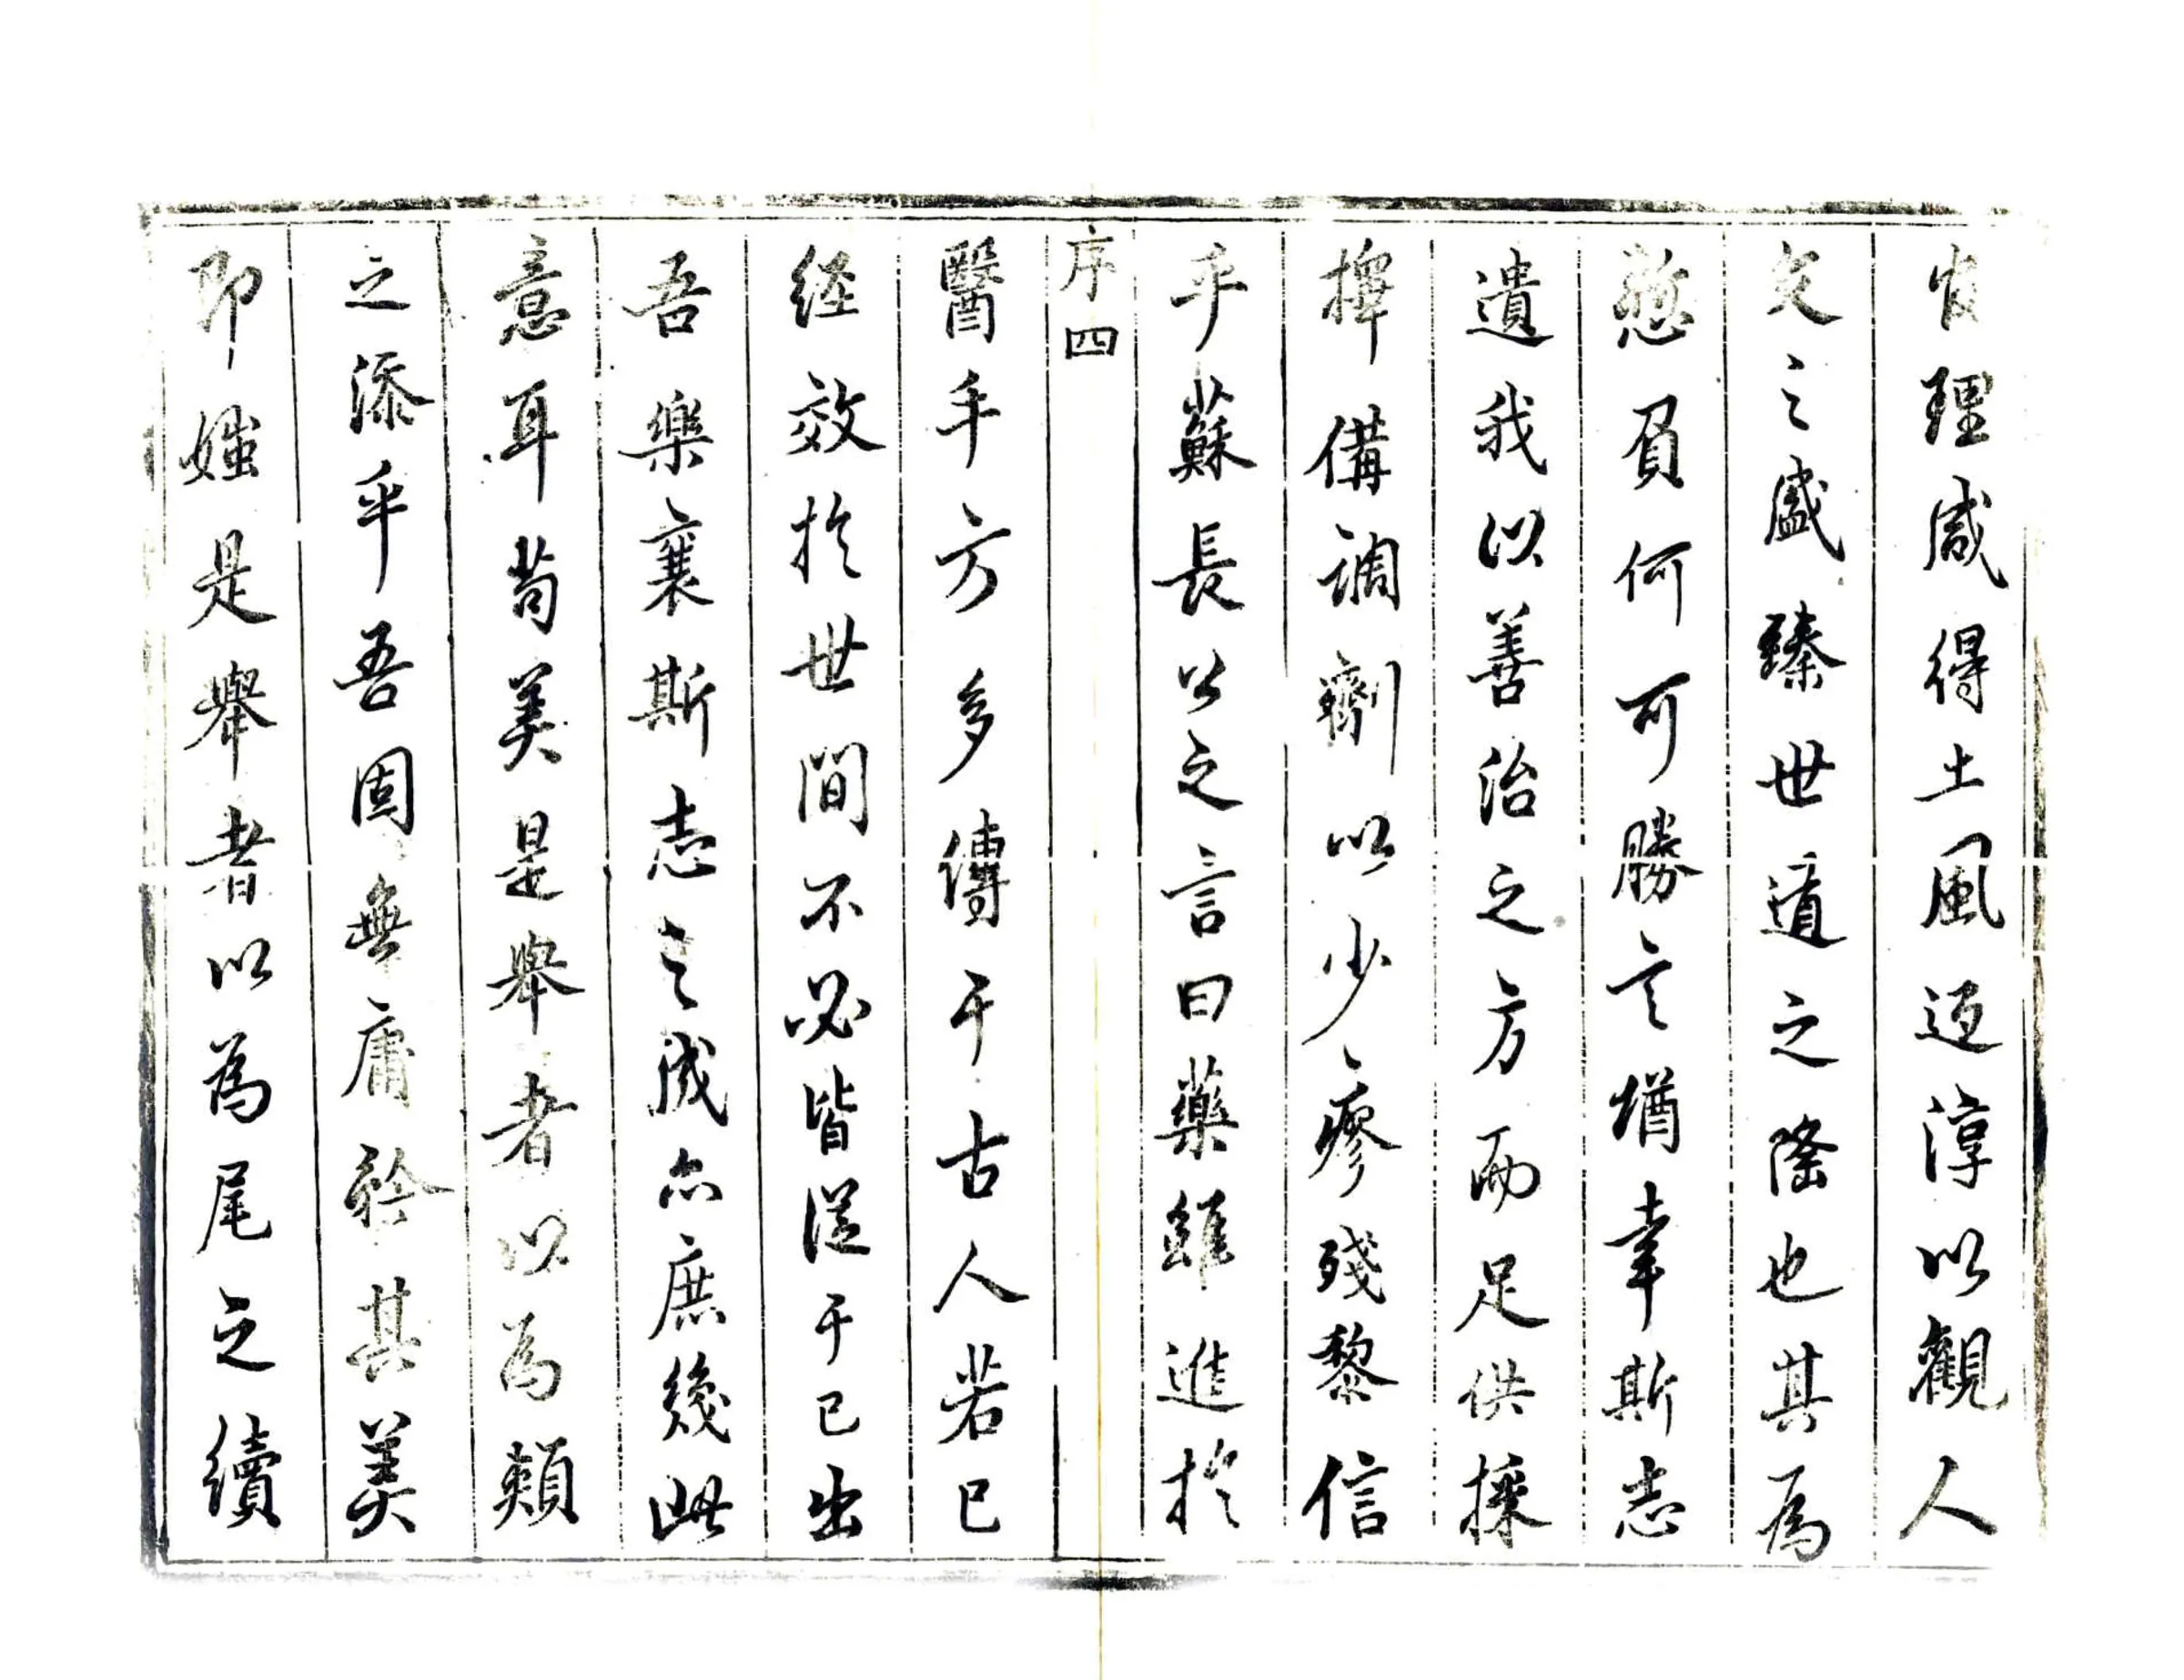 理咸得土風淳以觀人
文之盛臻世道之隆也其為
愆負何可勝言猶幸斯志
遺我以善治之方而足供採
擇備調劑以少瘳殘黎信
乎蘇長公之言曰藥雖進於
序四
醫手方多傳于古人若已
経效於世間不必皆従于已出
吾樂襄斯志之成亦庶幾此
意耳苟美是舉者以為頰
之添乎吾固無庸矜其美
即媸是舉者以為尾之續